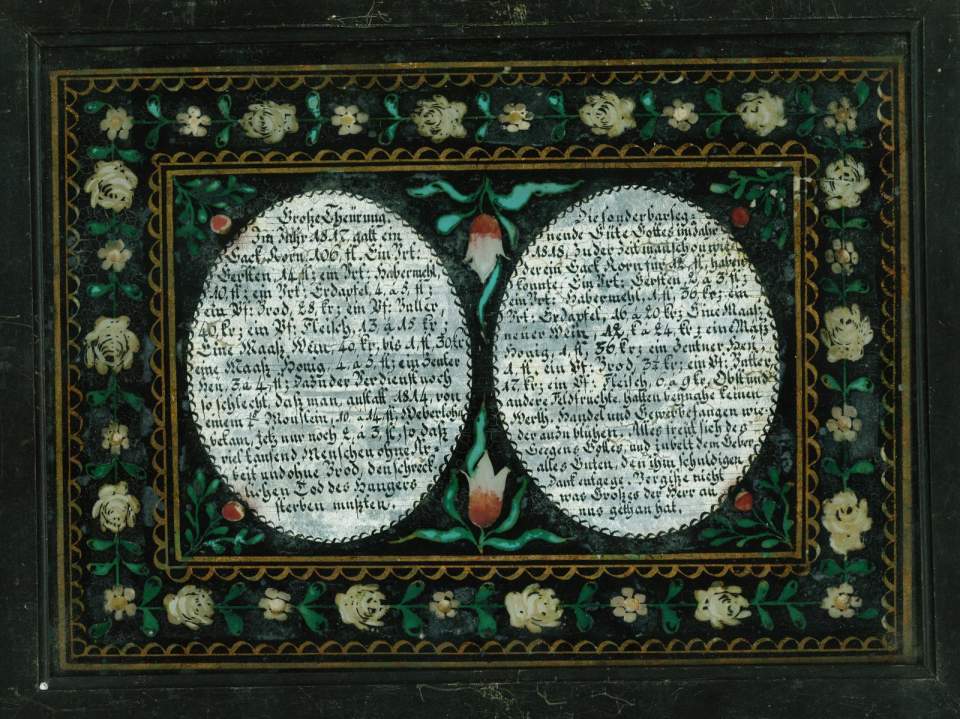 Große Theürung.
Im Jahr 1817, galt ein
Sack, Korn, 106, fl. Ein Vrt:
Gersten, 14, fl; ein Vrt: Habermehl,
10, fl; ein Vrt: Erdäpfel, 4 a 5, fl;
ein Pf: Brod, 28, kr; ein Pf: Butter,
40, kr; ein Pf: Fleisch, 13 à 15 kr;
Eine Maaß Wein, 40 kr, bis 1, fl, 30 kr
eine Maaß Honig, 4. a 5. fl; ein Zenter
Heu, 3 a 4, fl; Dazu der Verdienst noch
so schlecht, daß man, anstatt 1814, von
einem Moustein, 10, a 14, fl, Weberlohn
bekam, jetz nur noch 2, a 3, fl, so daß
viel tausend Menschen ohne Ar-
beit und ohne Brod, den schreck-
lichen Tod des Hungers
sterben mußten.
Die sonderbar seg-
nende Güte Gottes im Jahr
1818, In der Zeit man schon wie-
der ein Sack Korn für fl, haben
konnte; Ein Vrt. Gersten, 2 a 3, fl;
ein Vrt: Habermehl, 1, fl, 36, kr; ein
Vrt: Erdäpfel, 16 a 20 kr; Eine Maaß
neuer Wein, 12, k a 24, kr; eine Maß
Honig, 1, fl; 36 kr; ein Zentner Heu,
1, fl, ein Pf. Brod, kr; ein Pf: Butter
17, kr; ein Pf: Fleisch, a 9 kr, Obst und
andere Feldfrüchte, hatten beynahe keinen
Werth, Handel und Gewerb fangen wie-
der an zu blühen, Alles freut sich des
Seegens Gottes, und jubelt dem Geber
alles Guten, den ihm schuldigen
Dank entgege. Vergiße nicht
was Großes der Herr an
uns gethan hat.